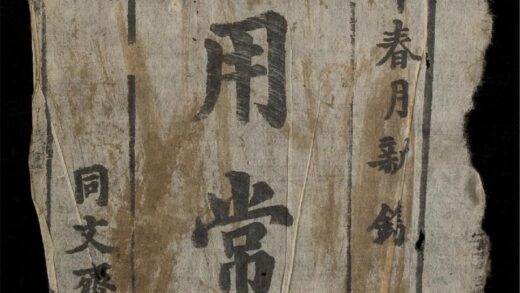 春月新鐫
用常
同文齋